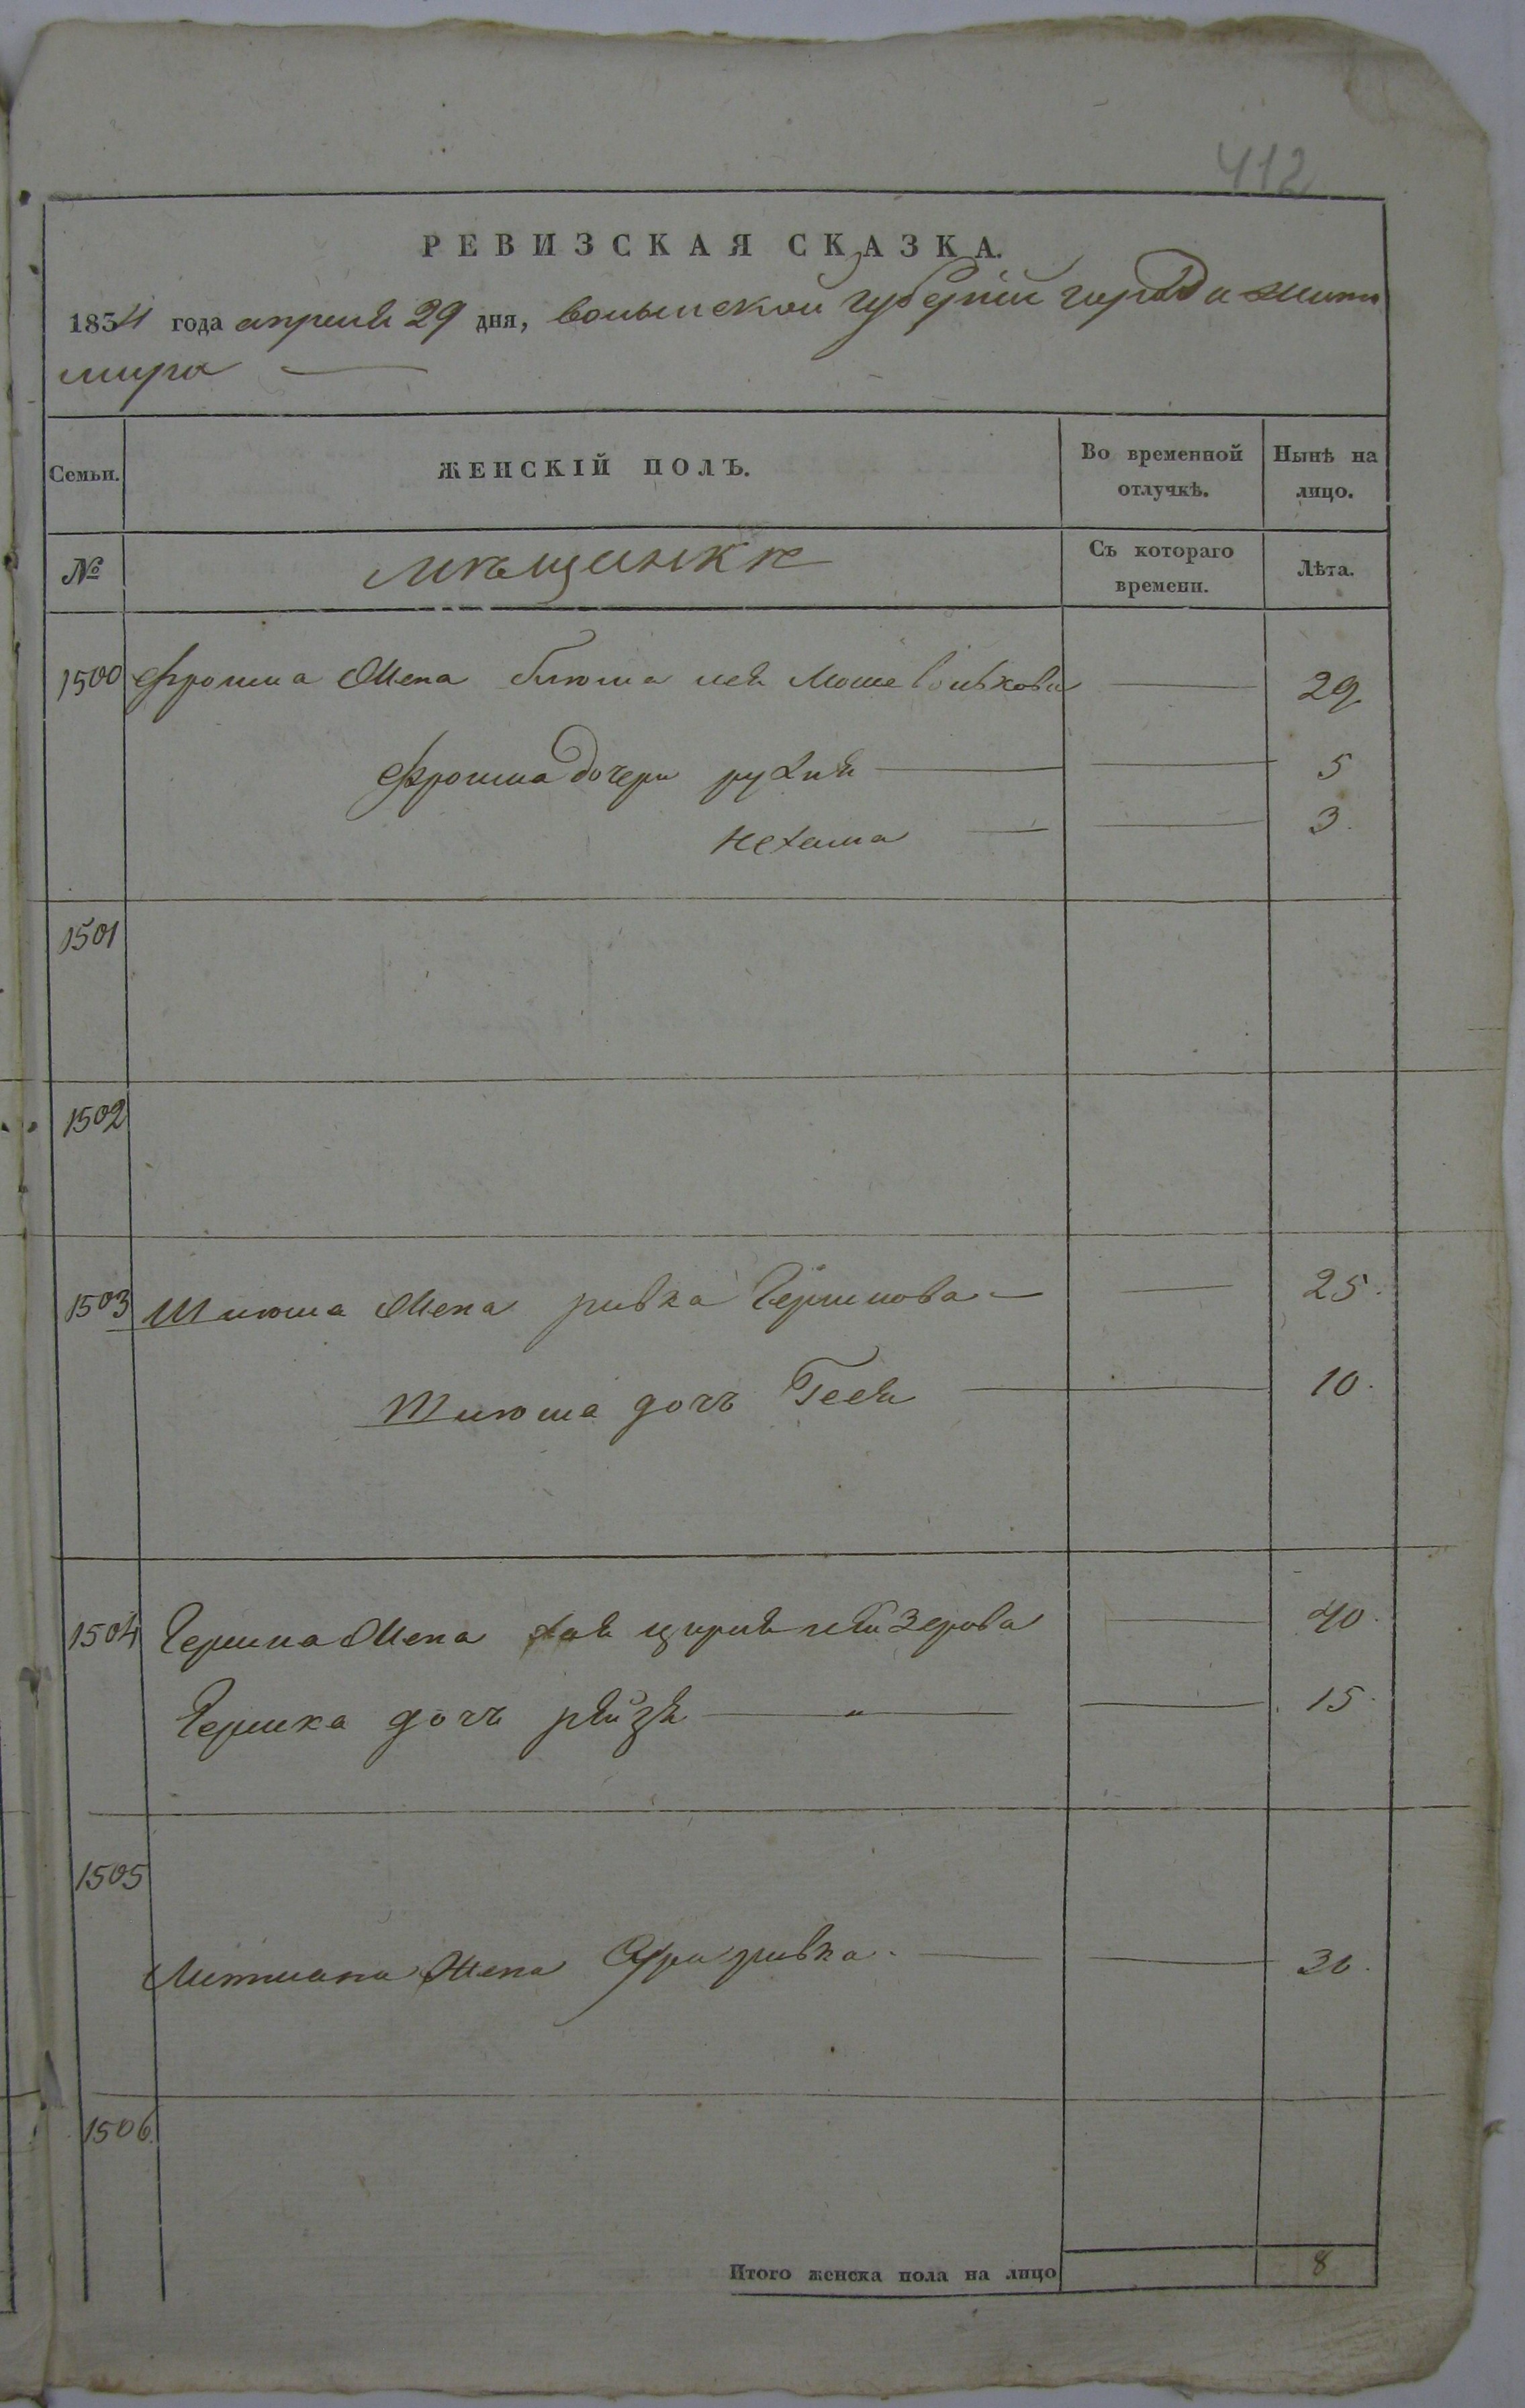 412
РЕВИЗСКАЯ СКАЗКА.
1854 года апреля 29 дня, волынской губерніи города жито
мира
Семьи.
ЖЕНСКІЙ ПОЛЪ.
Во временной отлучкѣ.
Нынѣ на лицо.
№
мѣщинкѣ
Съ котораго времени.
Лѣта.
1500 Фроима жена блюма лея Мошевольхова 29
Фроима дочери рухля 5
Нехама 3.
1501
1502
1503 Шлиома жена ривка Гершкова 25.
Шлиома дочь Гееля 10.
1504 Гершка жена хая цирля лейзерова 40.
Гершка дочь рейзя 15.
1505
жена ривка 30.
1506.
Итого женска пола на лицо 8